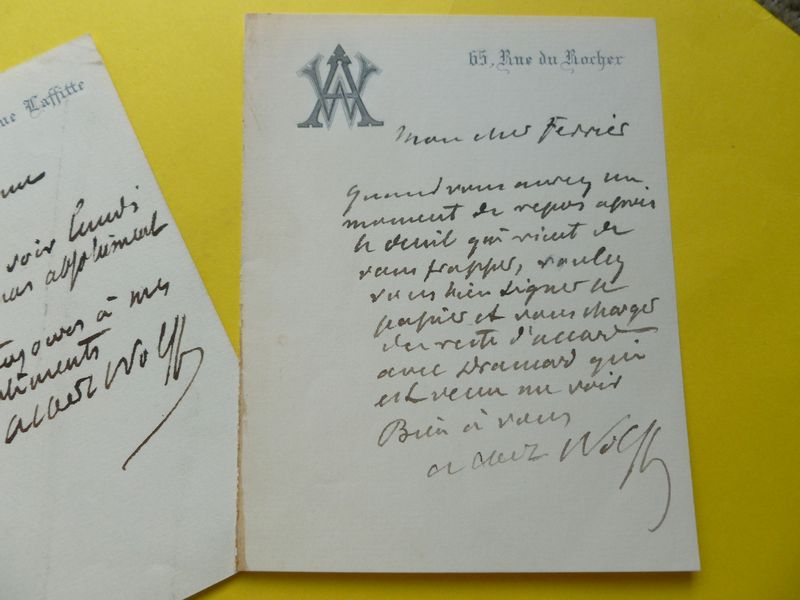 ue Laffitte
voir lundi
pas absolument
toujours à mes
sentiments
Albert Wolff
AW
65, Rue du Rocher
Mon cher Ferrier
Quand vous aurez un
moment de repos après
le deuil qui vient de
vous frapper, voulez
vous bien signer ce
papier et vous charger
du reste d'accord
avec Dramard qui
est venu me voir
Bien à vous
Albert Wolff